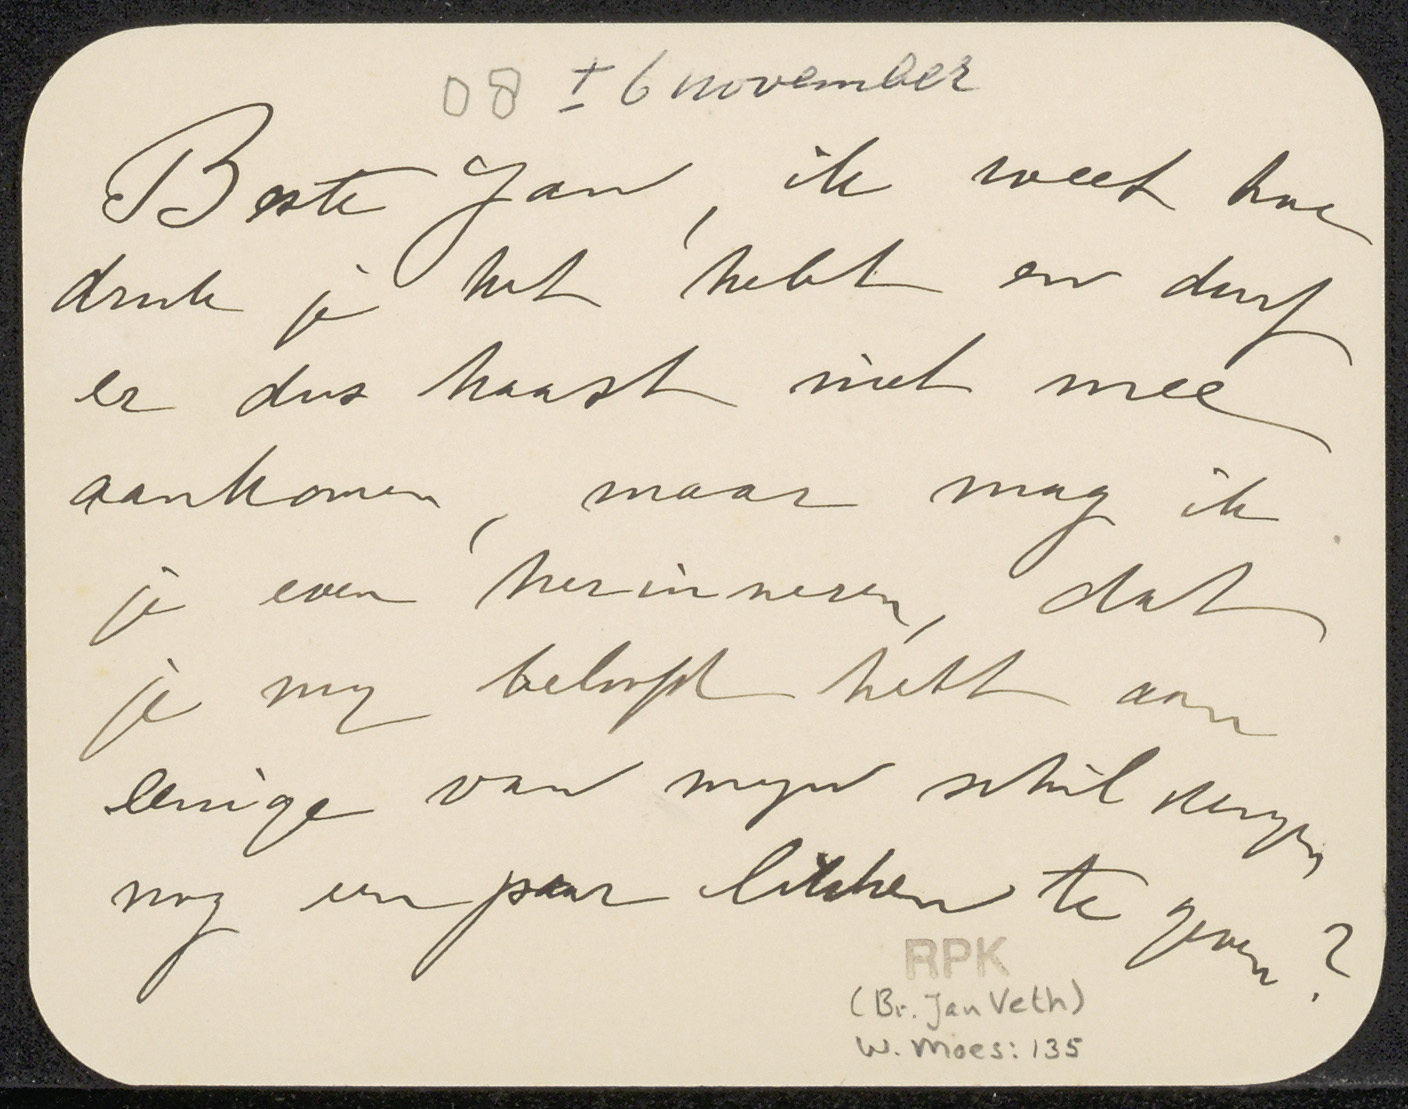 08 ± 6 november
Beste Jan, ik weet hoe
druk je het hebt en durf
er dus haast niet mee
aankomen, maar mag ik
je even herinneren, dat
je my beloofd hebt aan
eenige van myn schilderyen
nog een paar likken te geven?
RPK
(Br. Jan Veth)
W. Moes: 135